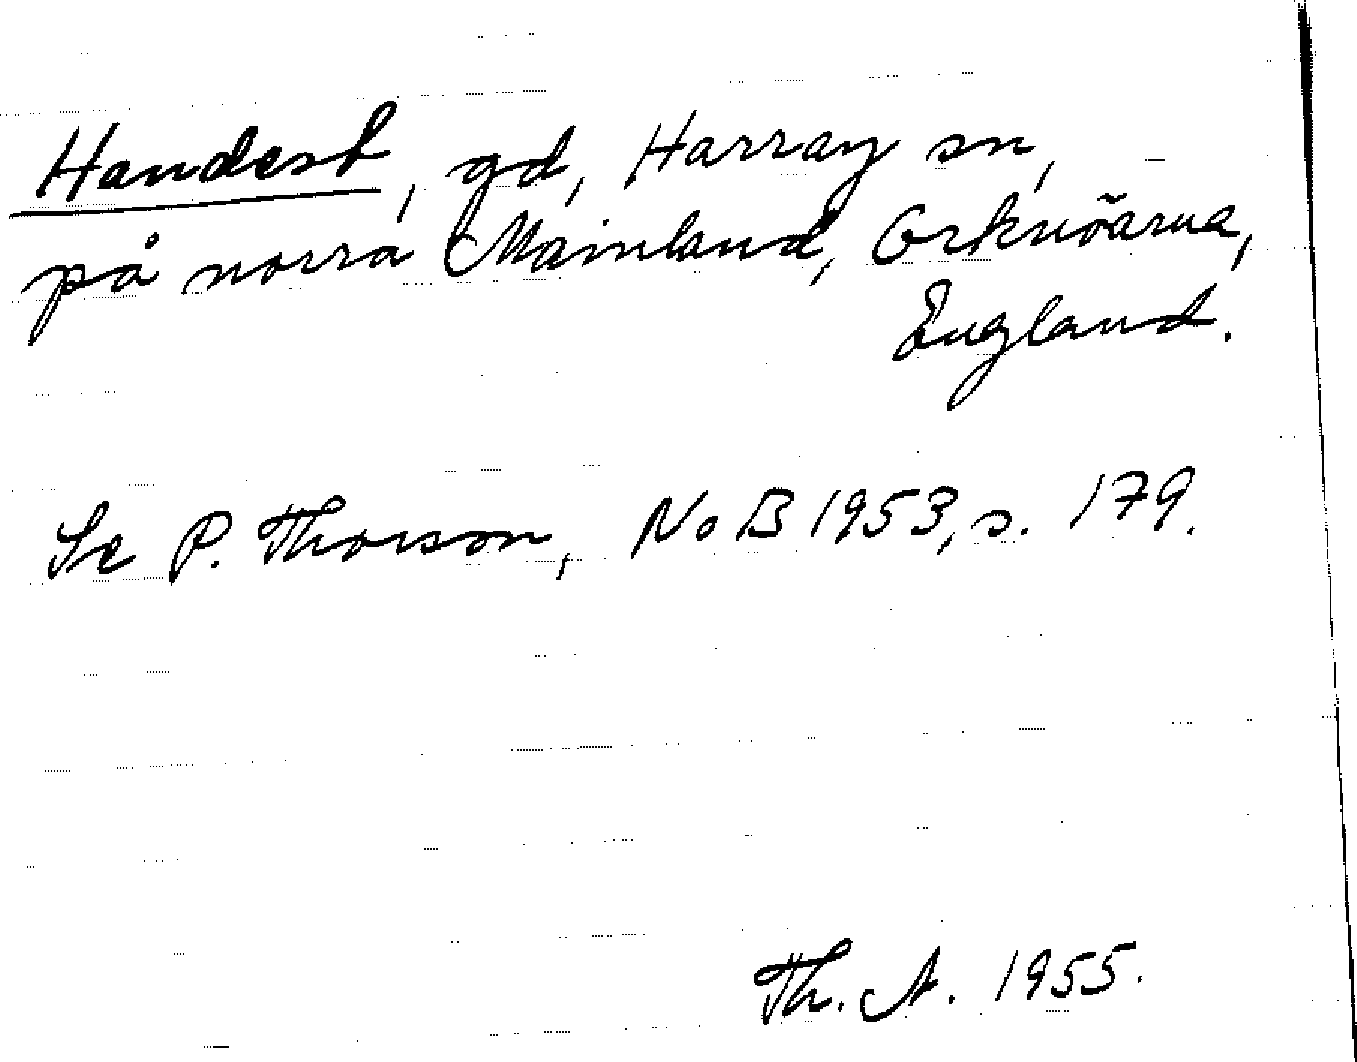 Handest, gd, Harray sn,
på norra Mainland, Orknöarna,
England.
Se P. Thorson, NoB 1953, s. 179.
Th. A. 1955.